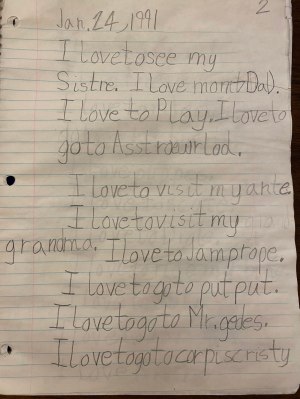 2
Jan. 24, 1991
I love to see my
Sistre. I love mom & DaD.
I love to Play. I love to
go to Asstroewrlod.
I love to visit my ante.
I love to visit my
grandma. I love to Jamprope.
I love to go to put put.
I love to go to Mr. gedes.
I love to go to corpiscristy